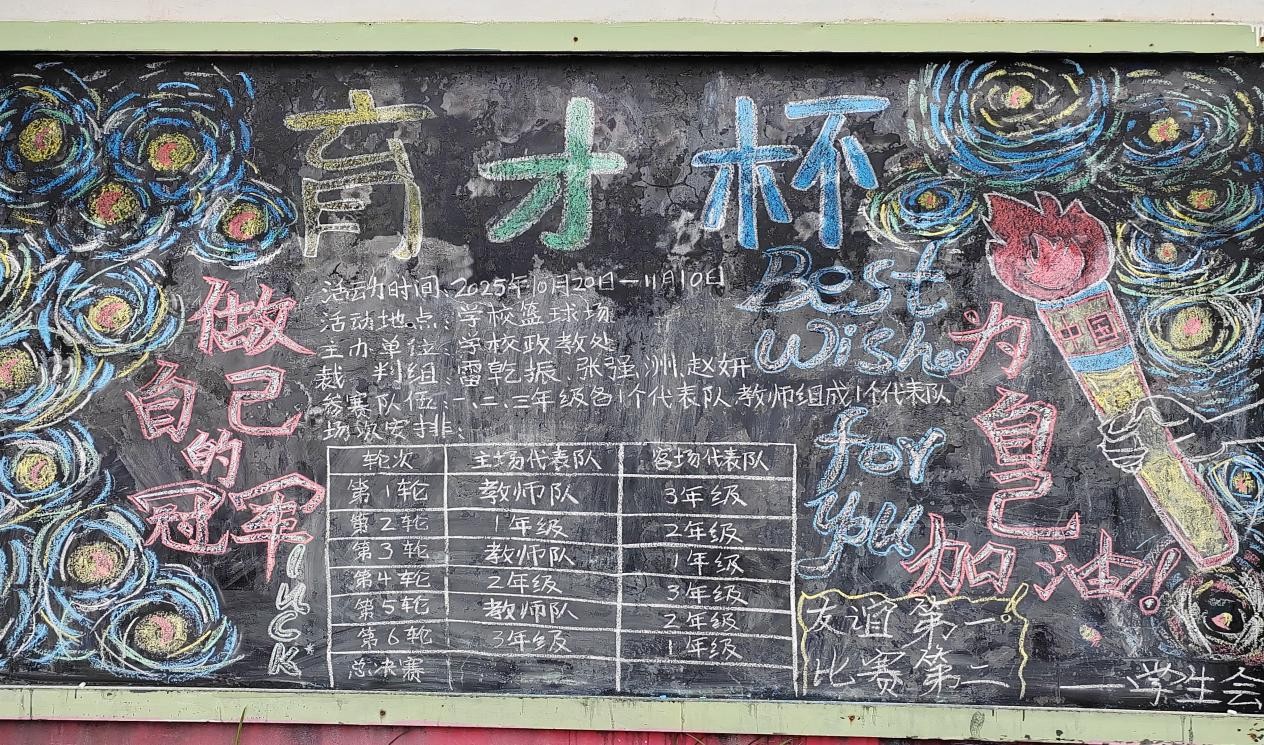 育才杯
做
自己
的
冠军
LUCK
活动时间:2025年10月20日—11月10日
活动地点:学校篮球场
主办单位:学校政教处
裁 判组:雷乾振、张强、洲、赵妍
参赛队伍:一、二、三年级各1个代表队、教师组成1个代表队
场次安排:
轮次 主场代表队 客场代表队
第1轮 教师队 3年级
第2轮 1年级 2年级
第3轮 教师队 1年级
第4轮 2年级 3年级
第5轮 教师队 2年级
第6轮 3年级 1年级
总决赛
Best
Wishes
for
you
中国
为
自
己
加油!
友谊第一
比赛第二
——学生会